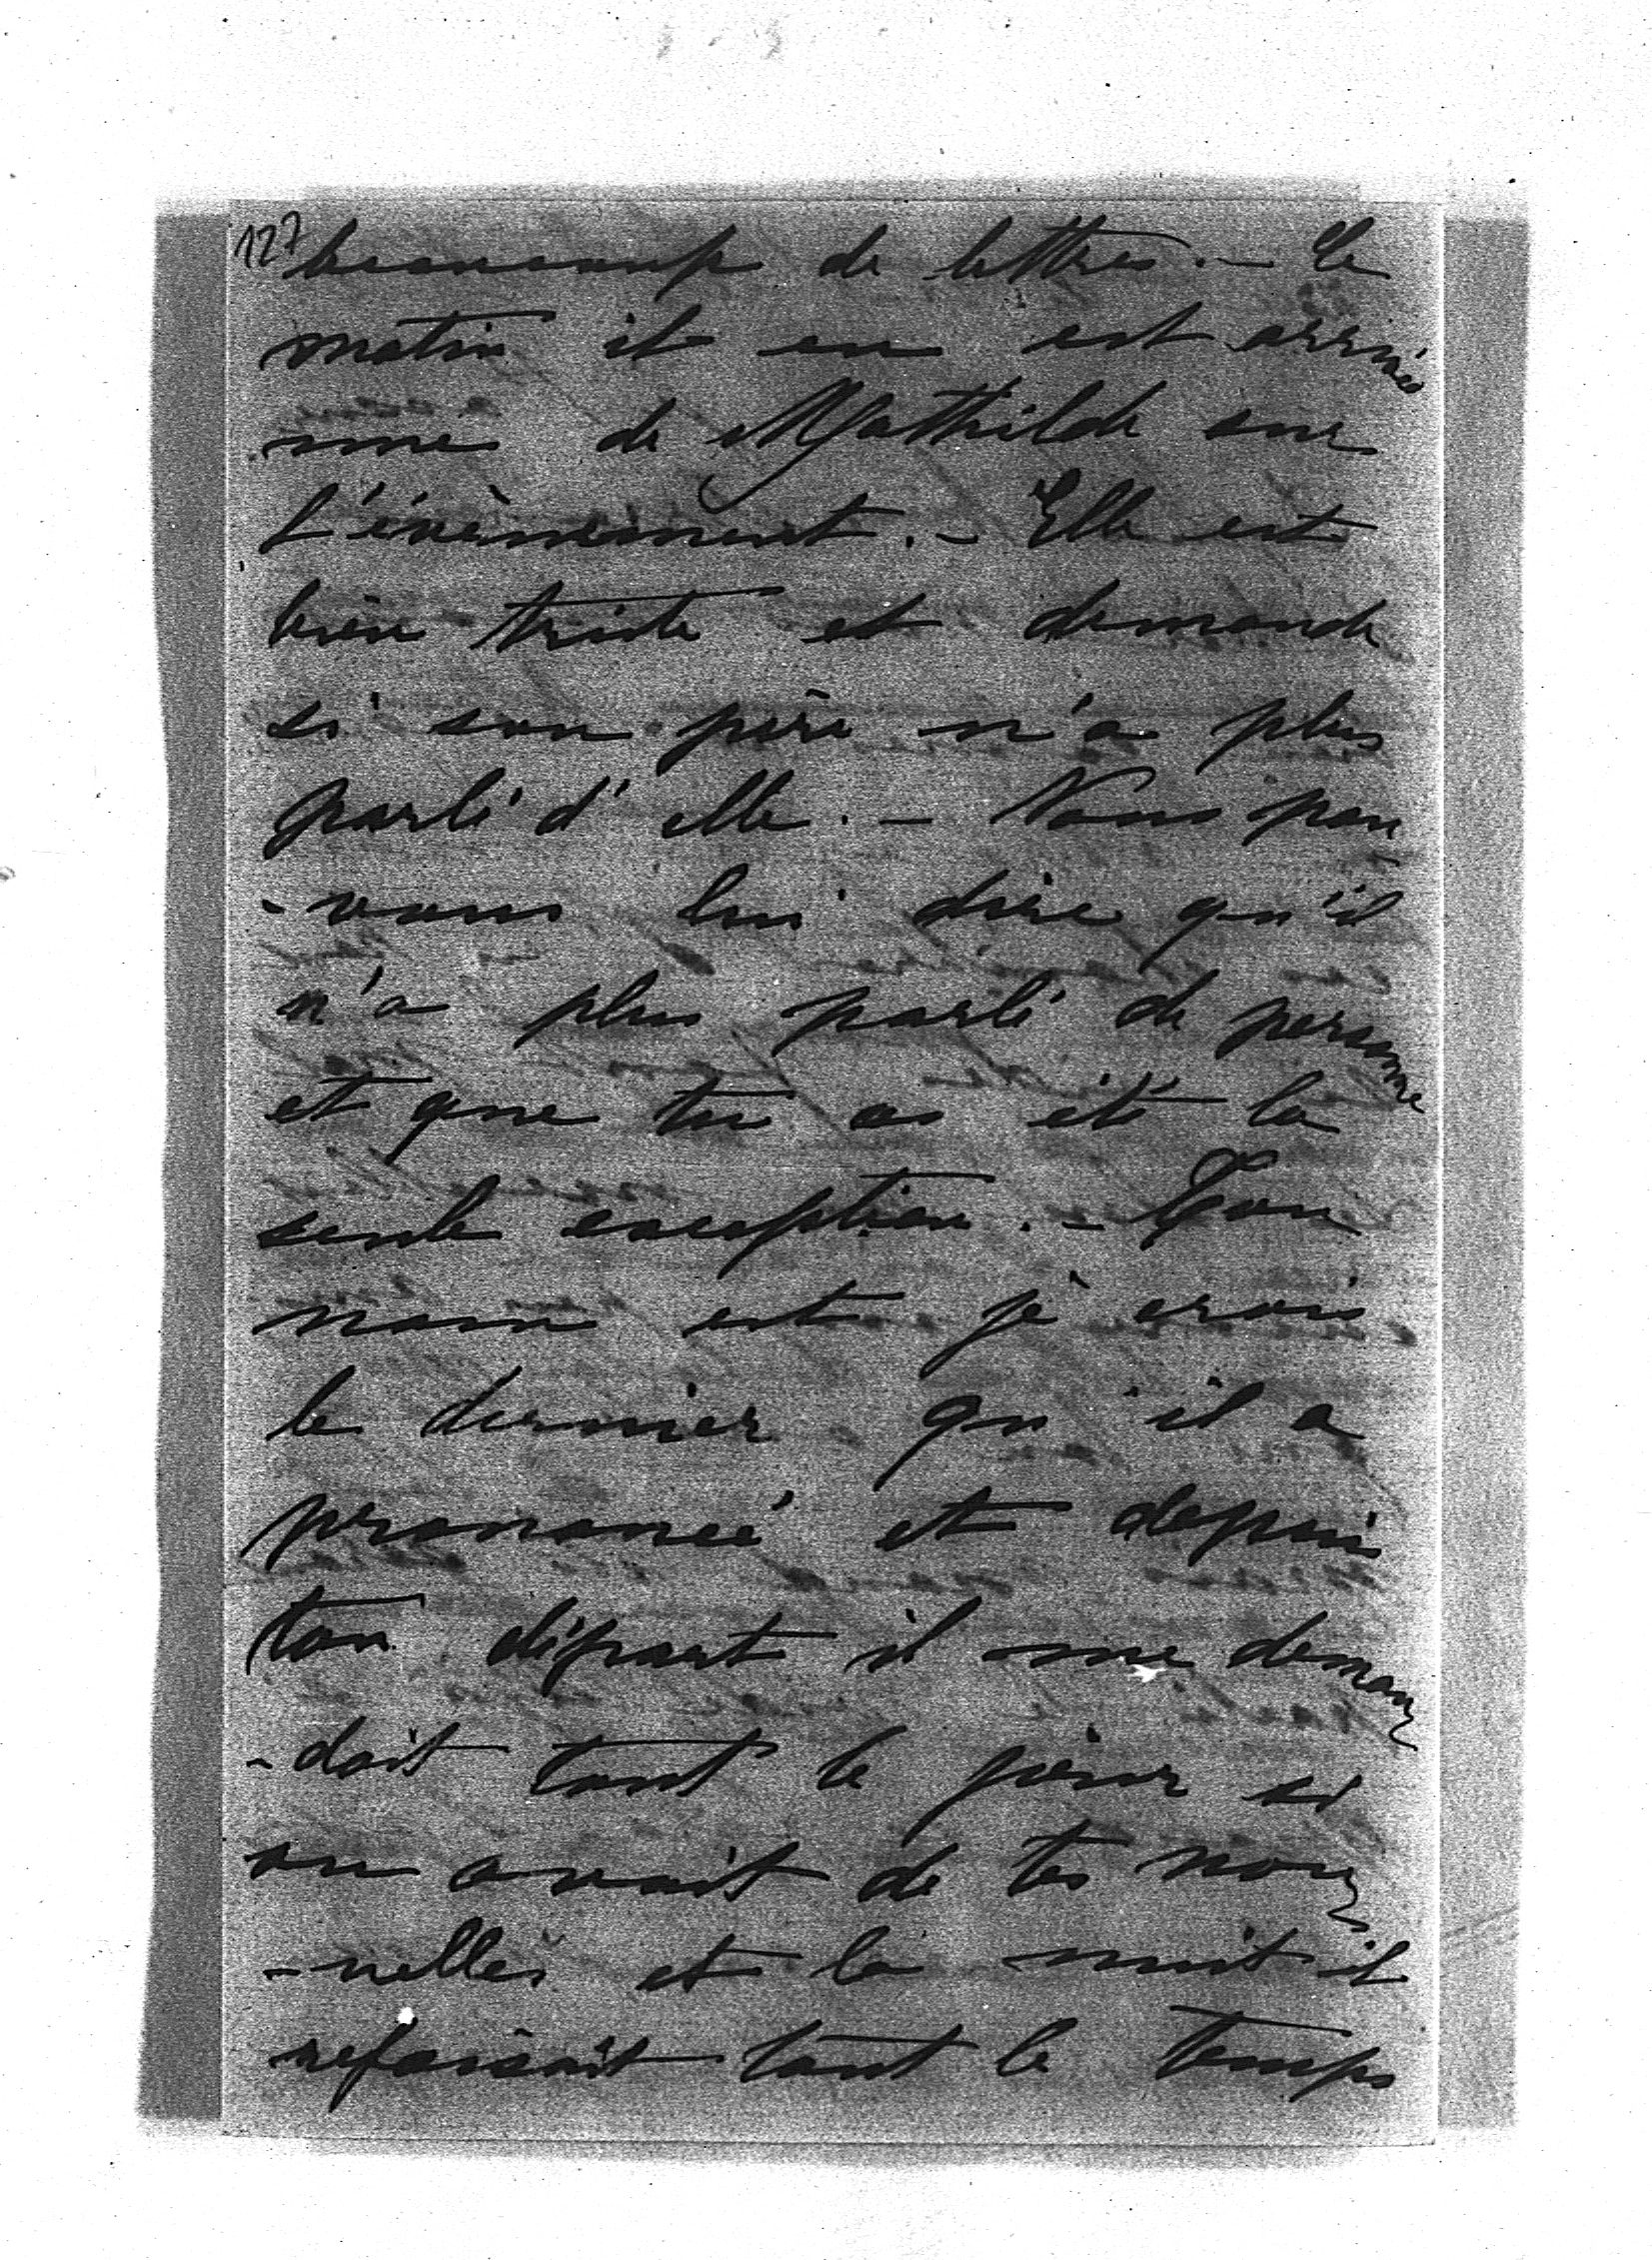 127 beaucoup de lettres. – Ce
matin il en est arrivé
une de Mathilde sur
l'évènement. – Elle est
bien triste et demande
si son père n'a plus
parlé d'elle. – Nous pou
-vons lui dire qu'il
n'a plus parlé de personne
et que tu as été la
seule exception. – Ton
nom est je crois
le dernier qu'il a
prononcé et depuis
ton départ il me deman
-dait tout le jour si
on avait de tes nou
-velles et la nuit il
refaisait tout le temps